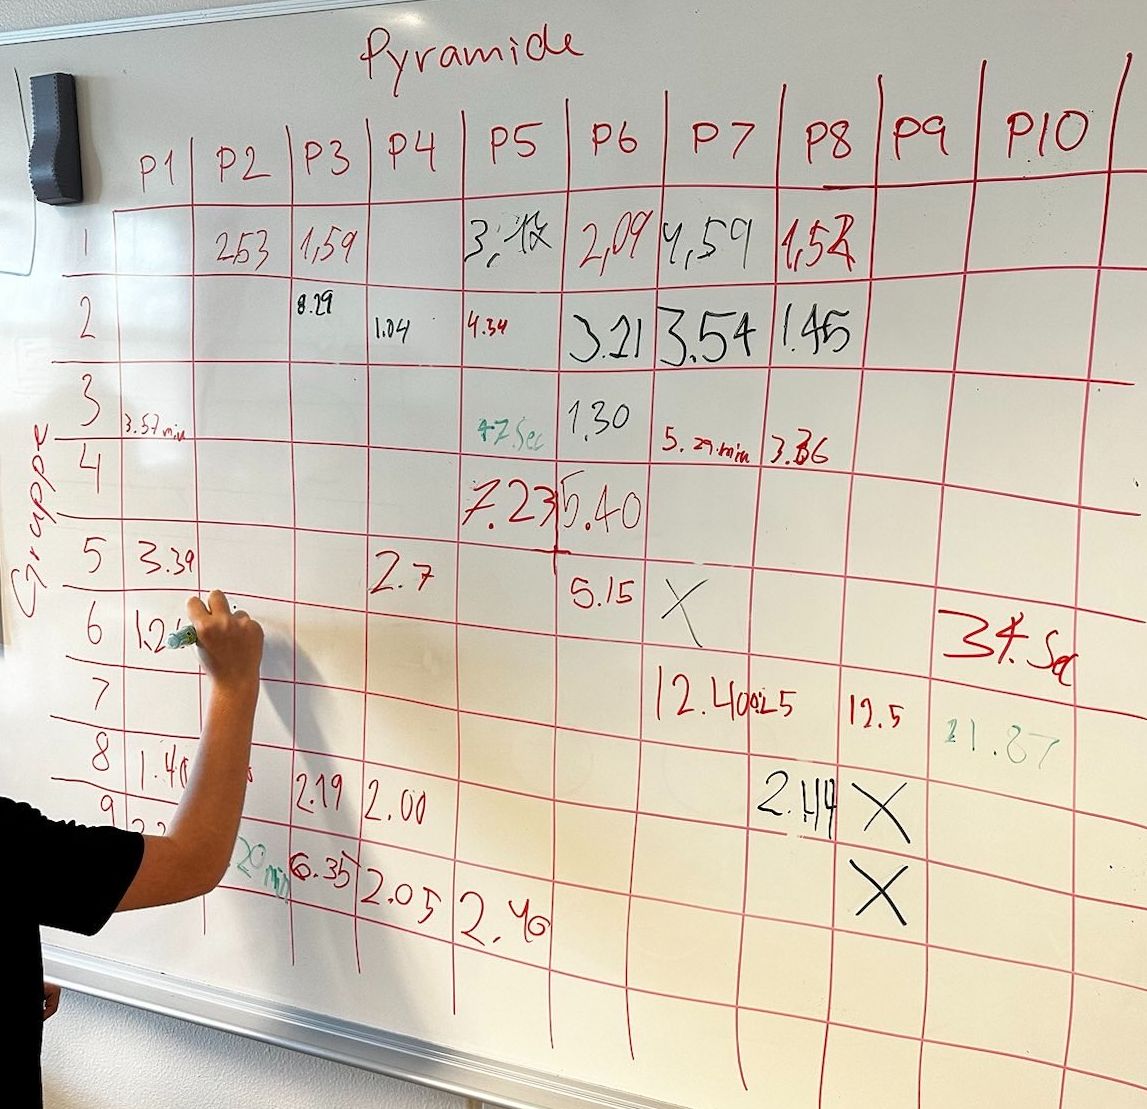 Pyramide
P1 P2 P3 P4 P5 P6 P7 P8 P9 P10
Gruppe
1 2,53 1,59 2,09 1,59
2 8.29 1.04 4.34 3.21 3.54 1.45
3 3.57 min 47 Sec 1.30 5.29 min 3.36
4 7.23 5.40
5 3.39 2.7 5.15 X
6 34. Sec
7 12.40 12.5 21.87
8 2.19 2.00 2.44 X
9 6.35 2.05 2.40 X